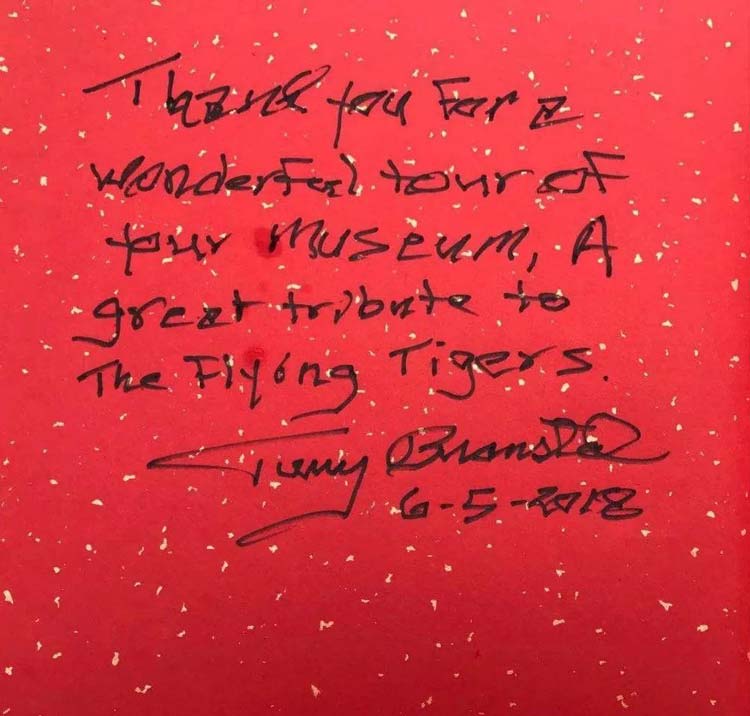 Thank you For a
wonderful tour of
your Museum, A
great tribute to
The Flying Tigers.
Terry Branstad
6-5-2018